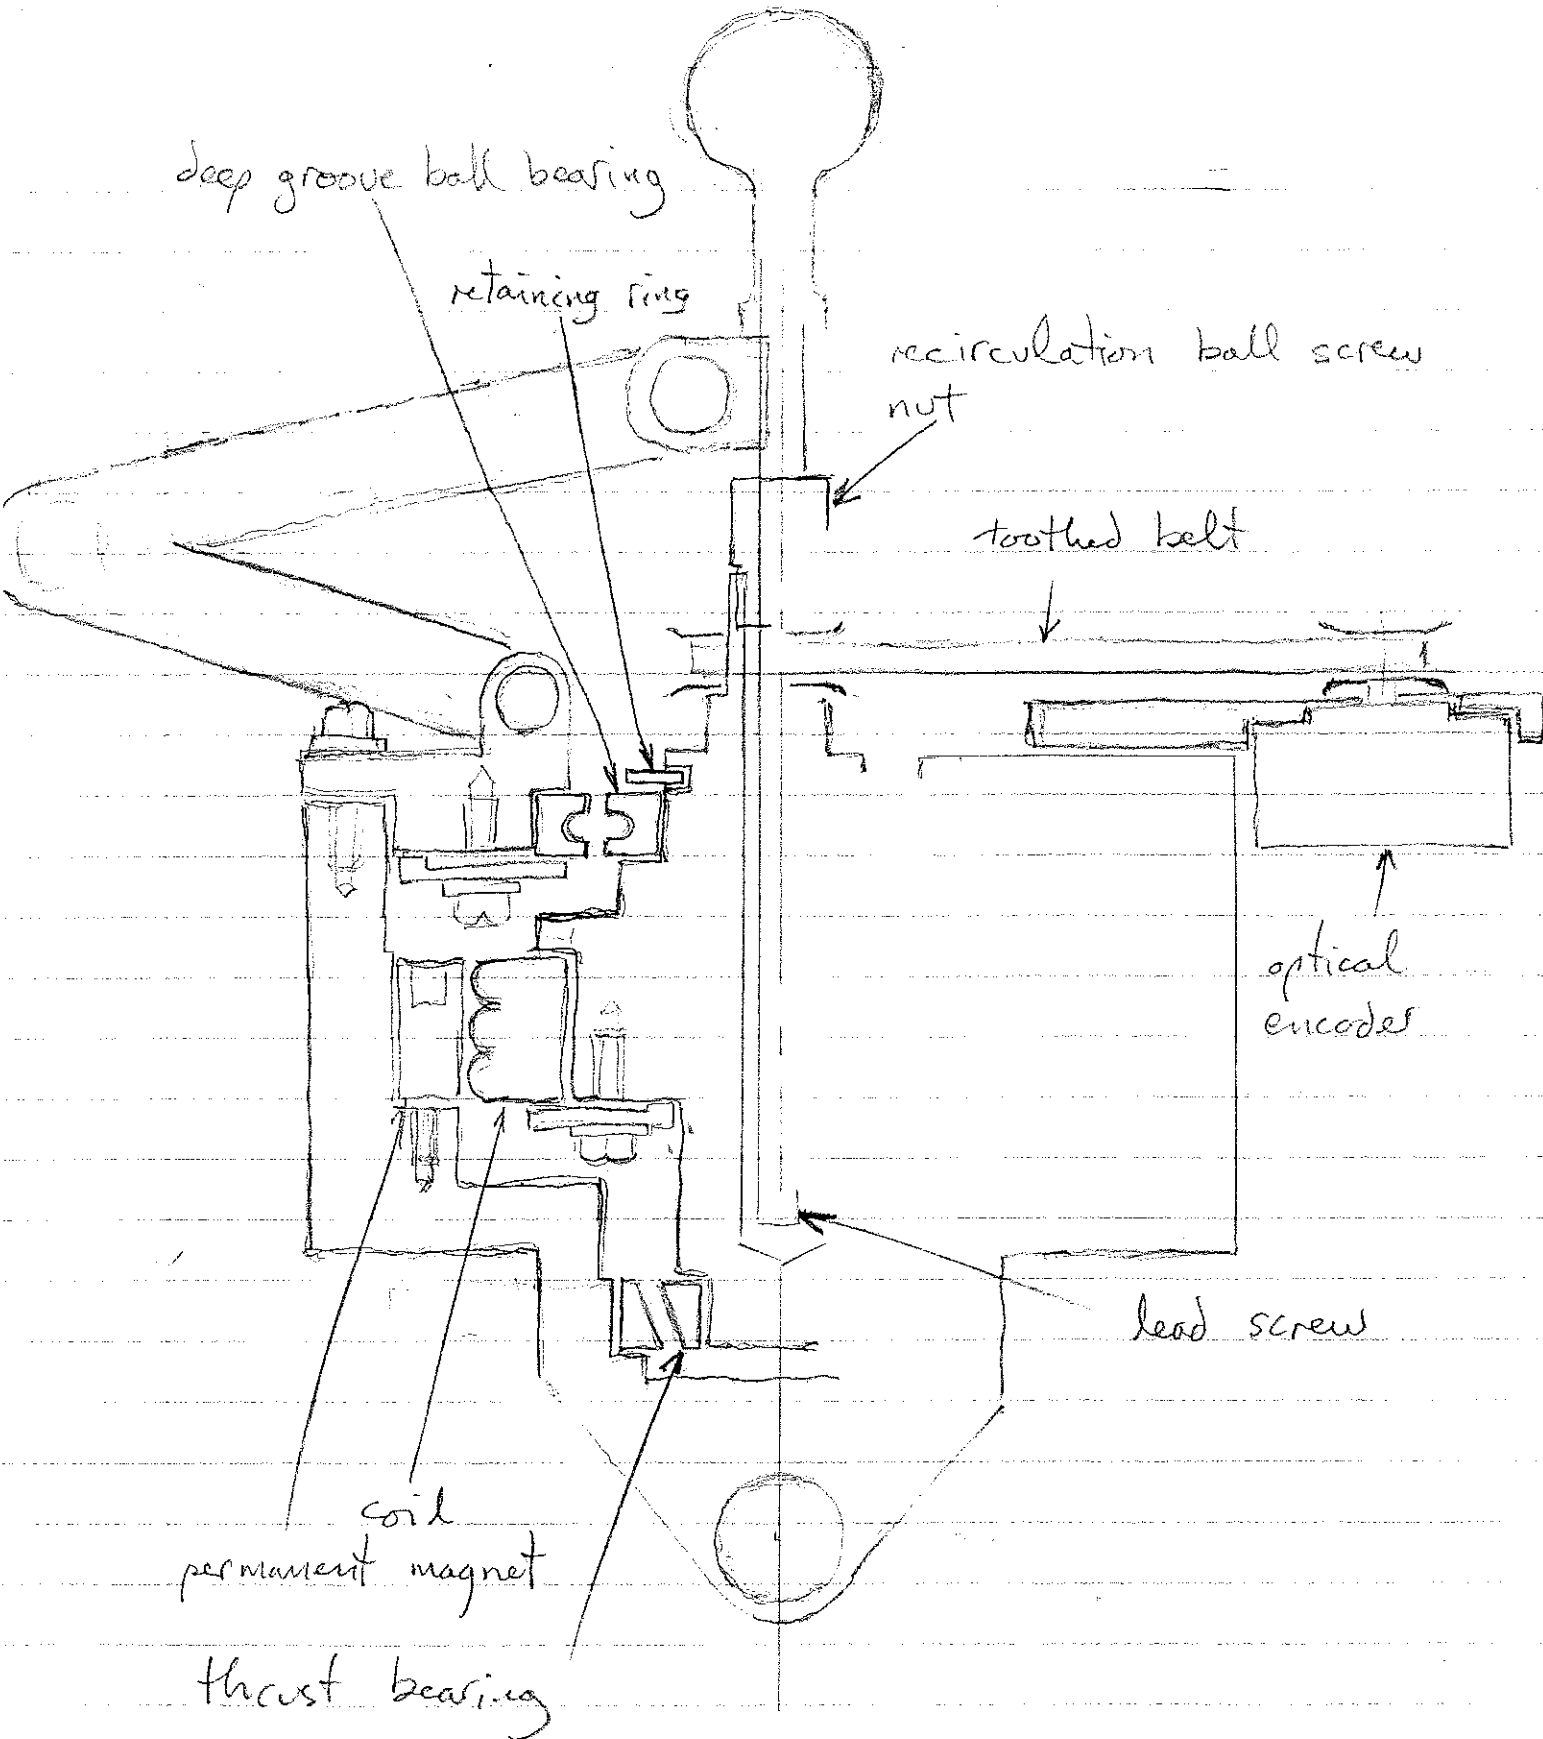 deep groove ball bearing
retaining ring
recirculation ball screw
nut
toothed belt
optical
encoder
lead screw
coil
permanent magnet
thrust bearing